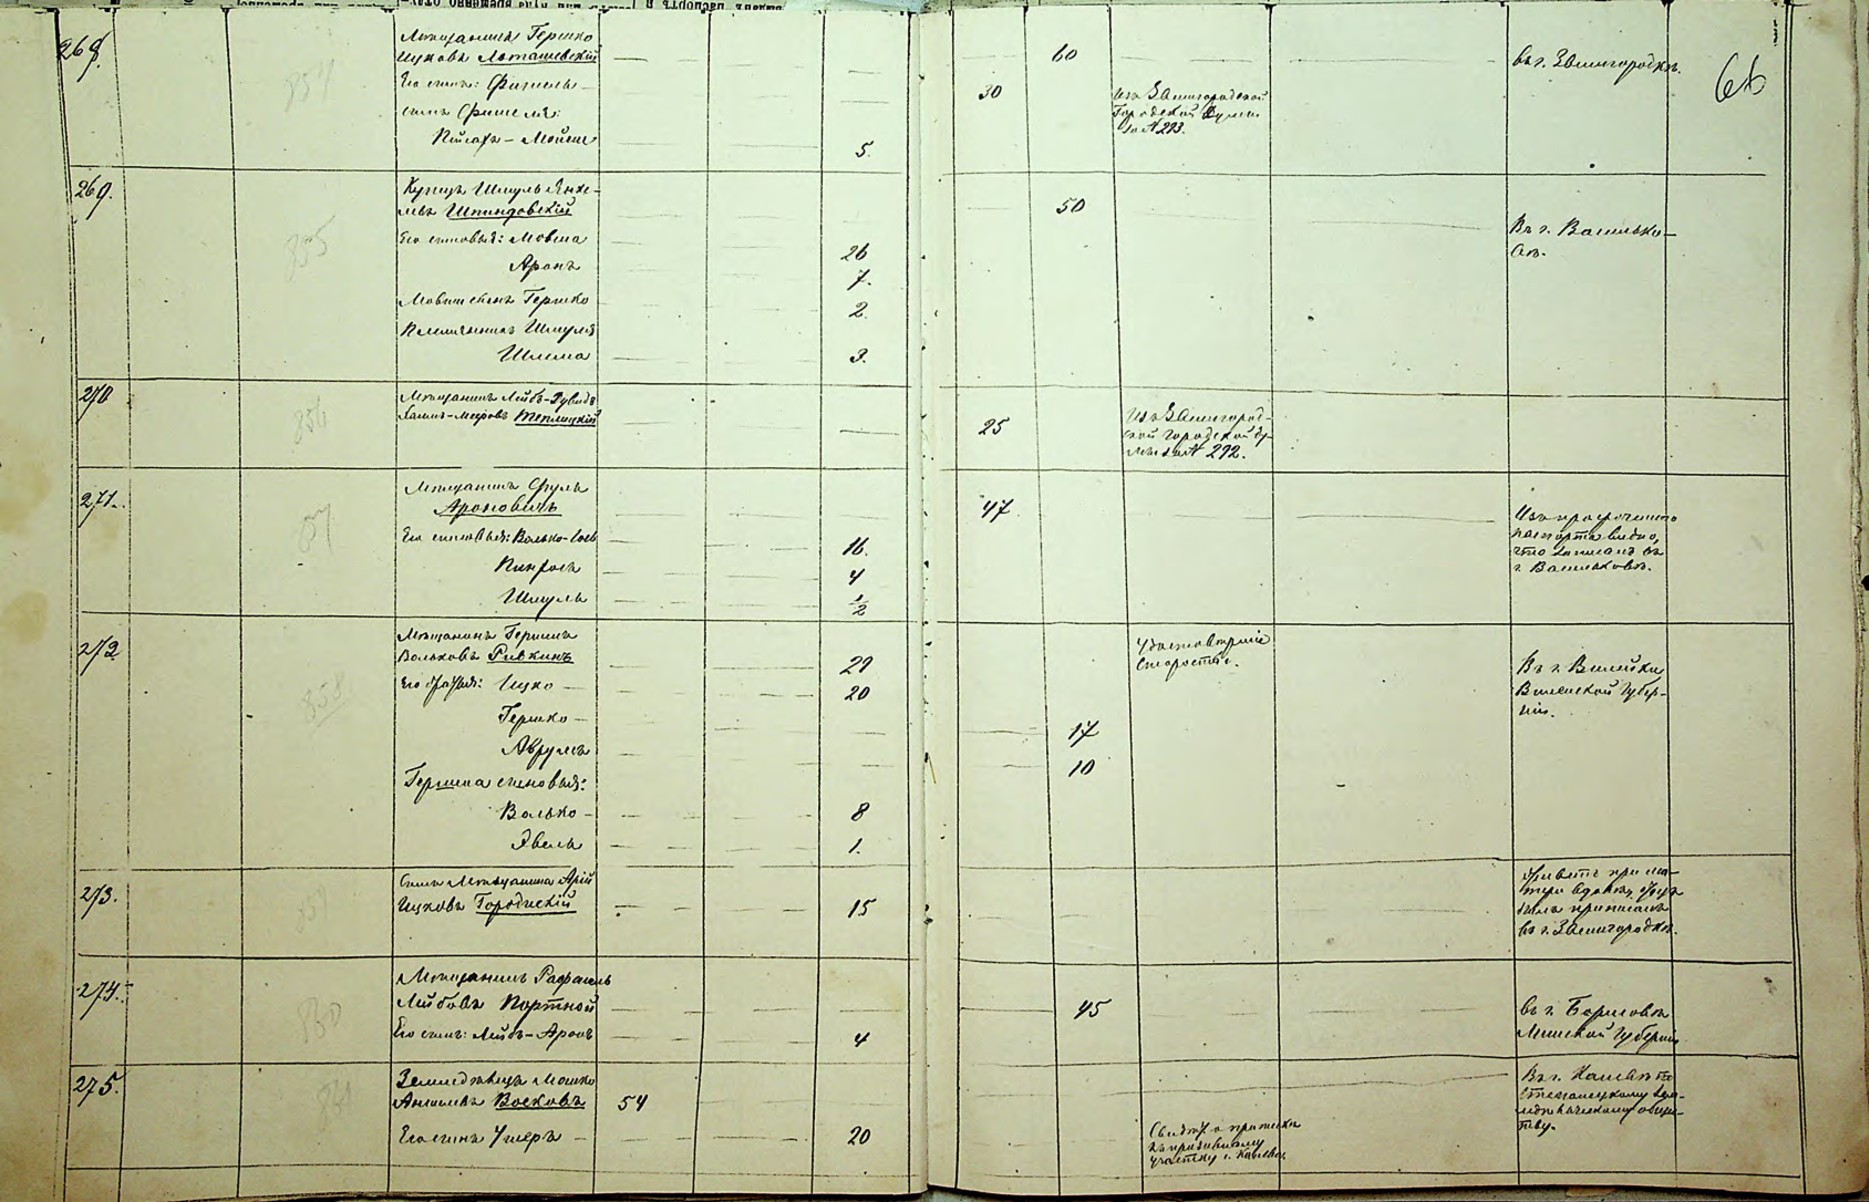 66
268.
854
Мѣщанинъ Гершко
Ицковъ Лоташевскій
60
въ г. Звенигородкѣ.
Его сынъ: Фишель
30
Изъ Звенигородской
Городской Думы
за № 293.
сынъ Фишеля:
Пейсахъ-Мойше
5.
269.
855
Купецъ Шмуль Янке-
левъ Шпиндовскій
50
Въ г. Василько-
вѣ.
Его сыновья: Мовша
26
Аронъ
7.
Мовши сынъ Гершко
2.
Племянникъ Шмуля
Шлема
3.
270
856
Мѣщанинъ Лейбъ-Дувидъ
Хаимъ-Меировъ Теплицкій
25
Изъ Звенигород-
ской Городской Ду-
мы за № 292.
271.
857
Мѣщанинъ Сруль
Ароновичъ
47
Изъ просроченнаго
паспорта видно,
что записанъ въ
г. Васильковѣ.
Его сыновья: Волько-
16.
Пинхосъ
4
Шмуль
1/2
272
858
Мѣщанинъ Гершъ
Вольковъ Ривкинъ
29
Удостовѣреніе
Старосты.
Въ г. Вилейкѣ
Виленской Губер-
ніи.
Его братья: Ицко
20
Гершко
17
Аврумъ
10
Герша сыновья:
Волько
8
Эвель
1.
273.
859
Сынъ мѣщанина Арій
Ицковъ Городискій
15
Живетъ при ма-
тери вдовѣ, отецъ
былъ приписанъ
въ г. Звенигородкѣ.
274.
830
Мѣщанинъ Рафаилъ
Лейбовъ Портной
45
въ г. Борисовѣ
Минской Губерніи
Его сынъ: Лейбъ-Аронъ
4
275.
831
Земледѣлецъ Мошко
Анчелевъ Восковъ
54
Въ г. Каневѣ по
Степанецкому зем-
ледѣльческому обще-
ству.
Его сынъ Ушеръ
20
Свидѣт. о припискѣ
къ призывному
участку г. Канева